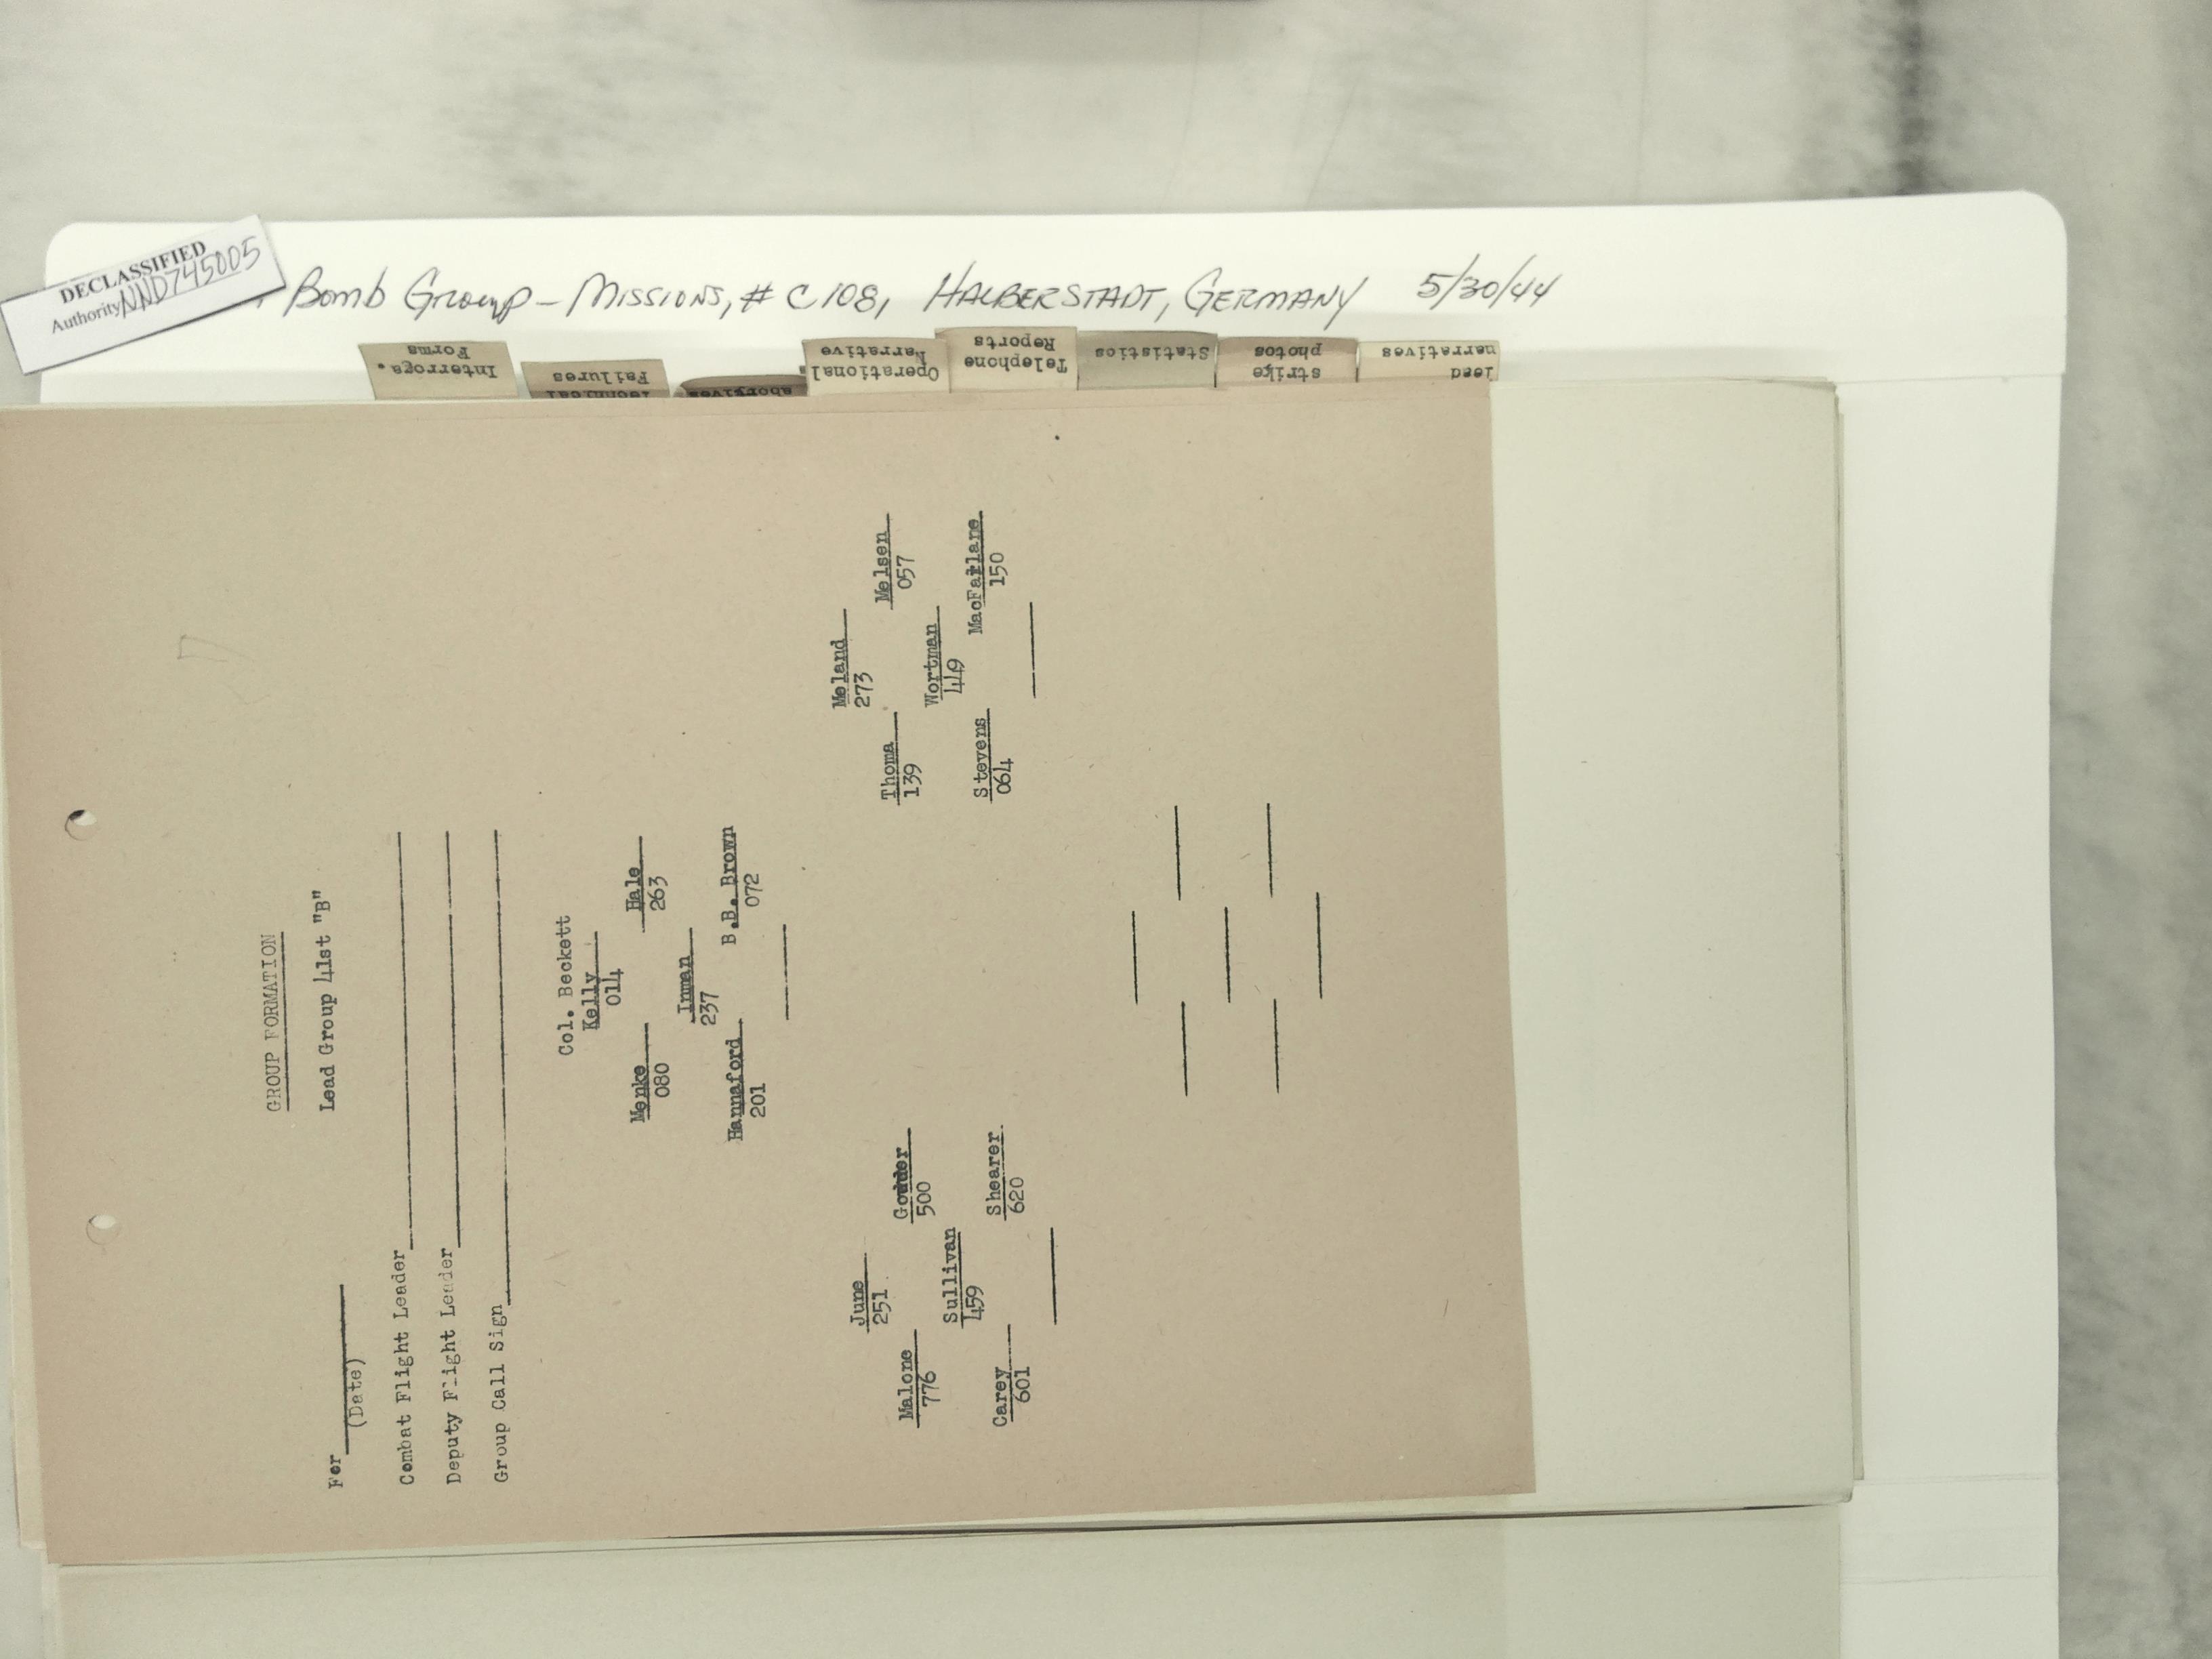 DECLASSIFIED
Authority NND745005
Bomb Group - Missions, # C108, HALBERSTADT, GERMANY 5/30/44
Interrogs.
Forms
Failures
abortives
Operational
Narrative
Telephone
Reports
Statistics
strike
photos
lead
narratives
GROUP FORMATION
For Lead Group 41st "B"
(Date)
Combat Flight Leader
Deputy Flight Leader
Group Call Sign
Col. Beckett
Kelly
014
Menke Hale
080 263
Inman
237
Hannaford B.B. Brown
201 072
June Meland
251 273
Malone Gowder Thoma Melsen
776 500 139 057
Sullivan Wortman
459 449
Carey Shearer Stevens MacFarlane
601 620 064 150